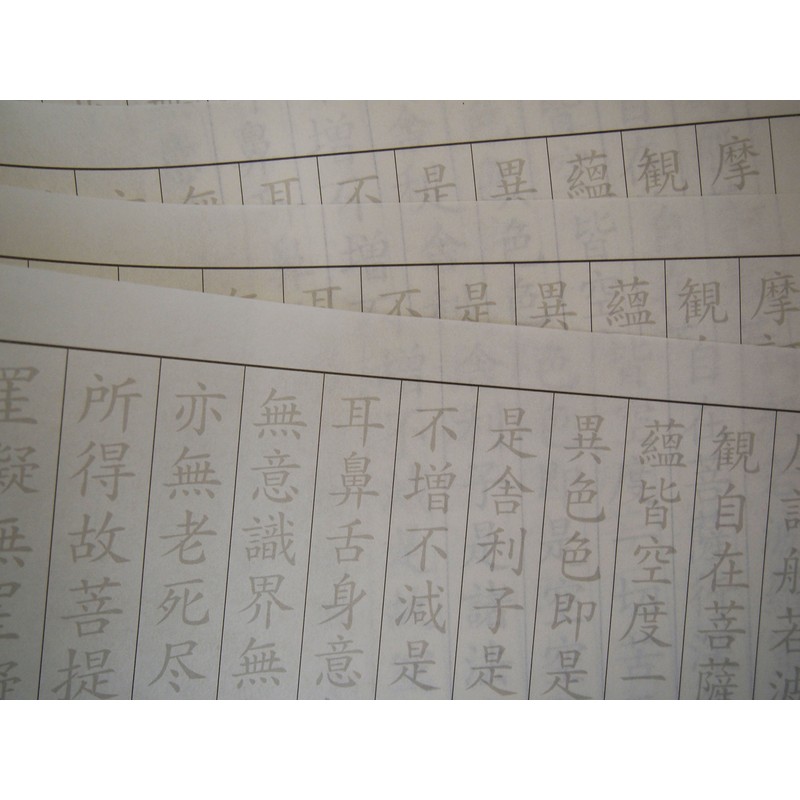 摩
観
蘊
異
是
不
耳
無
摩
観
蘊
異
是
不
耳
無
訶般若波
観自在菩薩
蘊皆空度一
異色色即是
是舎利子是
不増不減是
耳鼻舌身意
無意識界無
亦無老死尽
所得故菩提
罣礙無罣礙